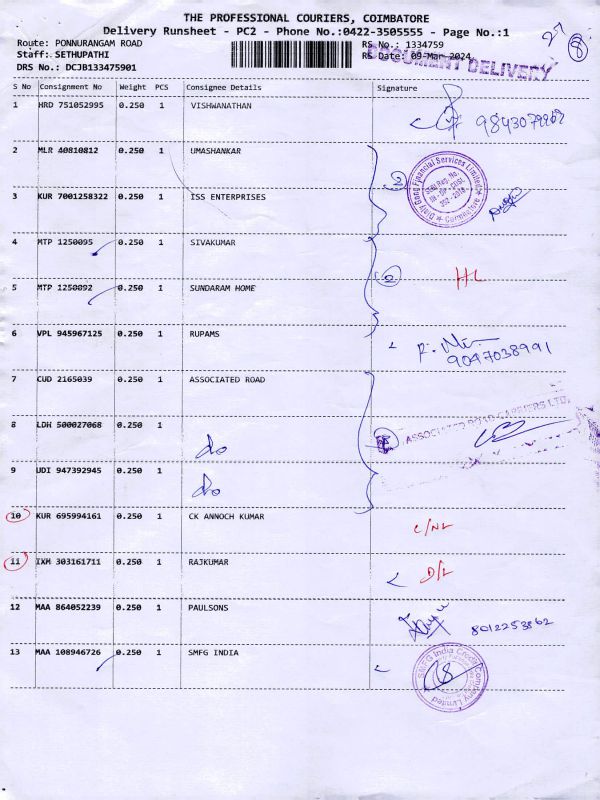 THE PROFESSIONAL COURIERS, COIMBATORE
Delivery Runsheet - PC2 - Phone No.:0422-3505555 - Page No.:1
Route: PONNURANGAM ROAD
Staff: SETHUPATHI
DRS No.: DCJB133475901
RS No.: 1334759
RS Date: 09-Mar-2024
DOCUMENT DELIVERY
8
S No Consignment No Weight PCS Consignee Details Signature
1 HRD 751052995 0.250 1 VISHWANATHAN
2 MLR 40810812 0.250 1 UMASHANKAR
2
3 KUR 7001258322 0.250 1 ISS ENTERPRISES
4 MTP 1250095 0.250 1 SIVAKUMAR
2 HL
5 MTP 1250092 0.250 1 SUNDARAM HOME
6 VPL 945967125 0.250 1 RUPAMS
9047038991
7 CUD 2165039 0.250 1 ASSOCIATED ROAD
8 LDH 500027068 0.250 1 do
ASSOCIATED ROAD CARRIERS LTD.
9 UDI 947392945 0.250 1 do
10 KUR 695994161 0.250 1 CK ANNOCH KUMAR
C/NL
11 IXM 303161711 0.250 1 RAJKUMAR
D/L
12 MAA 864052239 0.250 1 PAULSONS
8012253862
13 MAA 108946726 0.250 1 SMFG INDIA
SMFG India Credit Company Limited